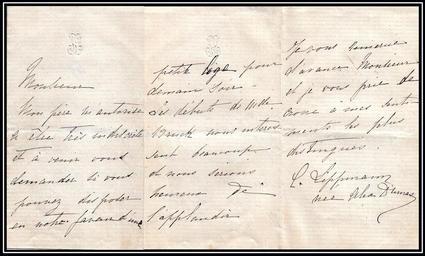 Monsieur
Mon père m'autorise
à être très indiscrète
et à venir vous
demander si vous
pouvez disposer
en notre faveur d'une
petite loge pour
demain soir
Les débuts de Mlle
nous intéres
sent beaucoup
et nous serions
heureux de
l'applaudir
Je vous remercie
d'avance Monsieur
et je vous prie de
croire à mes senti
ments les plus
distingués.
C. Lippmann
née Alex. Dumas